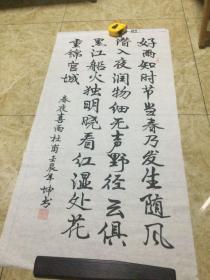 好雨知时节当春乃发生随风
潜入夜润物细无声野径云俱
黑江船火独明晓看红湿处花
重锦官城
春夜喜雨杜甫壬辰年坤书